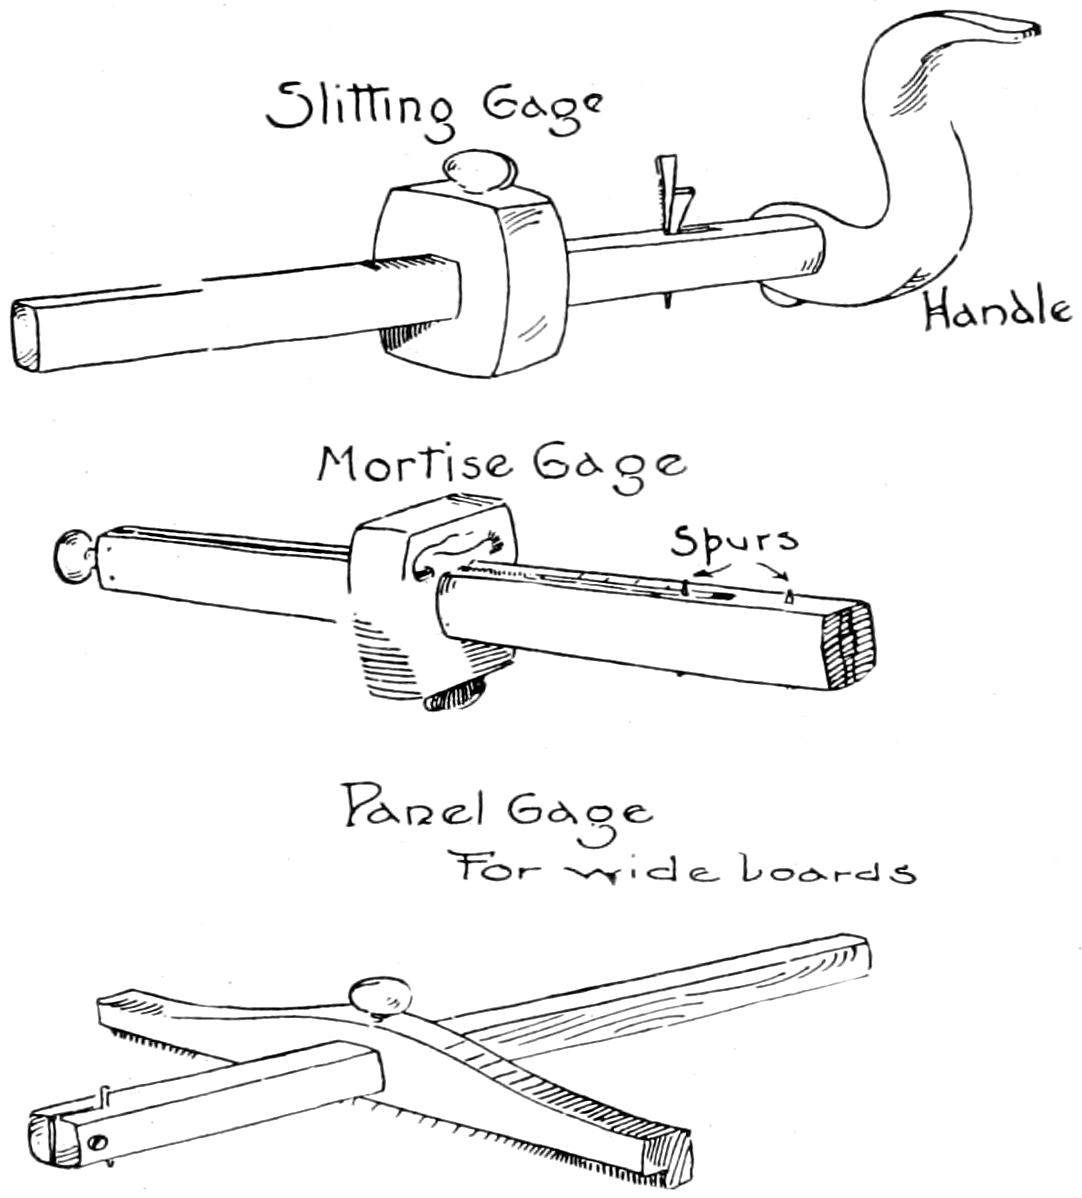 Slitting Gage
Handle
Mortise Gage
Spurs
Panel Gage
For wide boards